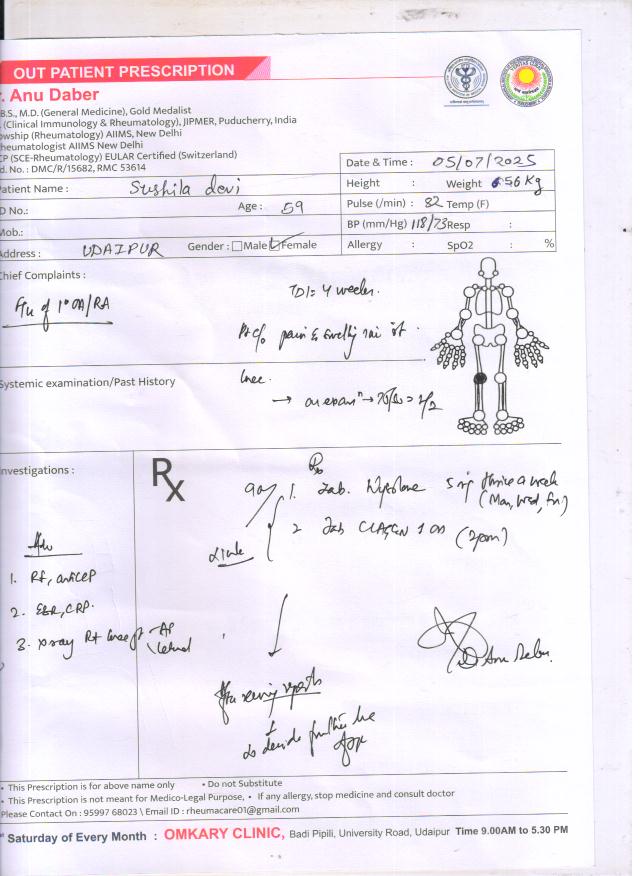 OUT PATIENT PRESCRIPTION
r. Anu Daber
B.S., M.D. (General Medicine), Gold Medalist
. (Clinical Immunology & Rheumatology), JIPMER, Puducherry, India
owship (Rheumatology) AIIMS, New Delhi
heumatologist AIIMS New Delhi
CP (SCE-Rheumatology) EULAR Certified (Switzerland)
d. No. : DMC/R/15682, RMC 53614
Date & Time : 05/07/2025
Patient Name : Sushila devi
Height : Weight 56 Kg
D No.: Age : 59
Pulse (/min) : 82 Temp (F)
Mob.:
BP (mm/Hg) 118/73 Resp :
Address : UDAIPUR Gender : Male Female
Allergy : SpO2 : %
Chief Complaints :
TDI = 4 weeks.
F/u of 1° OA/RA
Pt c/o pain &
knee.
Systemic examination/Past History
→ on → = 2/2
Investigations :
Rx
Rx
1. Tab. 5 mg thrice a week
(Mon, Wed, Fri)
2 Tab (2pm)
Adv
1. RF, antiCCP
2. ESR, CRP.
3. xray Rt knee jt AP
Lateral
After seeing reports
to decide further
Dr Anu Daber.
• This Prescription is for above name only • Do not Substitute
• This Prescription is not meant for Medico-Legal Purpose, • If any allergy, stop medicine and consult doctor
Please Contact On : 95997 68023 \ Email ID : rheumacare01@gmail.com
st Saturday of Every Month : OMKARY CLINIC, Badi Pipili, University Road, Udaipur Time 9.00AM to 5.30 PM